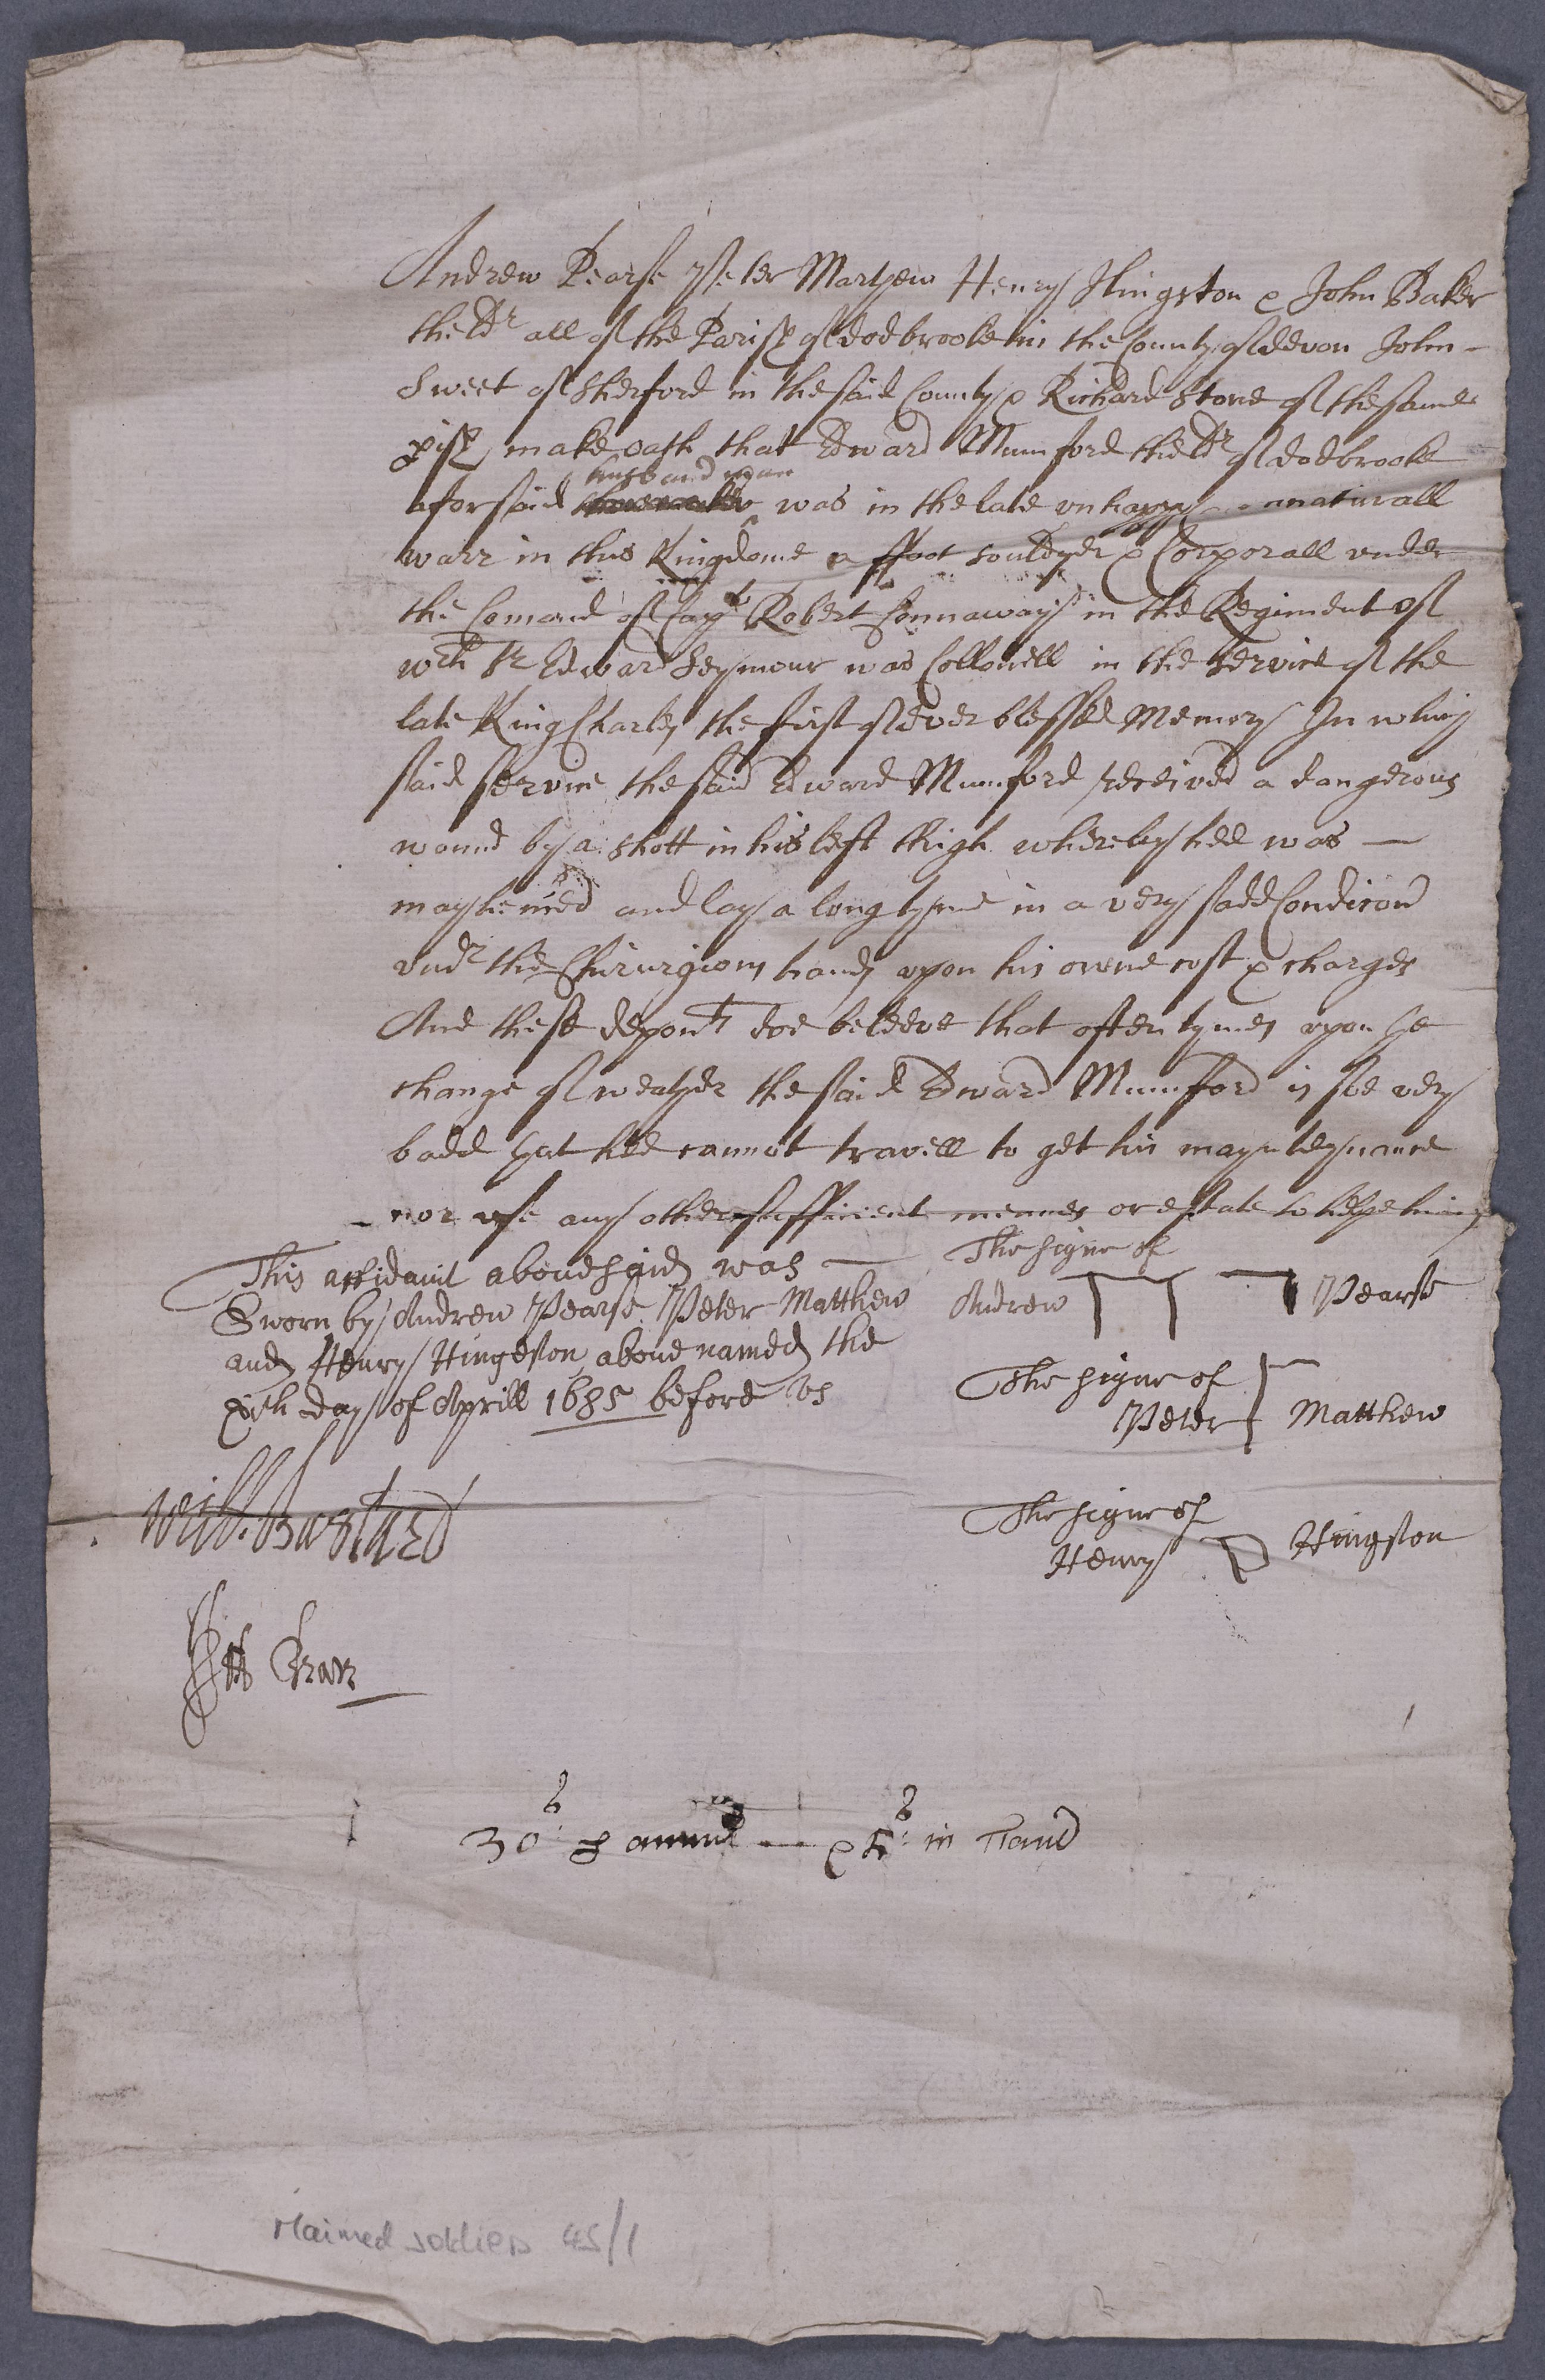 Andrew Pearse Peter Mathew Henry Hingston & John Baker
the Eldr all of the Parish of dodbrooke in the County of devon John -
Sweet of Sherford in the said County & Richard Stone of the same
pish make oath that Edward Mumford the Eldr of dodbrooke
husbandman
aforsaid was in the late vnhappy vnnaturall
warr in this Kingdome a ffoot souldyer & Corporall vnder
the Comand of Capt Robert Connaway in the Regiment of
wch Sr Edward Seymour was Collonell in the service of the
late King Charles the first of ever blessed Memory In which
said service the said Edward Mumford received a dangerous
wound by a shott in his left thigh whereby hee was —
mayhemed and lay a long tyme in a very sadd Condicon
vndr the Chirurgions hands vpon his owne cost & charges
And these deponts doe beleeve that oftentymes vpon the
change of weather the said Edward Mumford is soe very
badd that hee cannot travell to get his maynteynance
- nor vse any other sufficient meanes or estate to helpe him
This affidavit abouesaid was —
Sworn by Andrew Pearse Peter Matthew
and Henry Hingeston aboue named the
day of Aprill 1685 before vs
The signe of
Andrew Pearse
The signe of
Peter Matthew
The signe of
Henry Hingston
Will: Bastard
30s p annum — & 5s in hand
Maimed soldiers 45/1